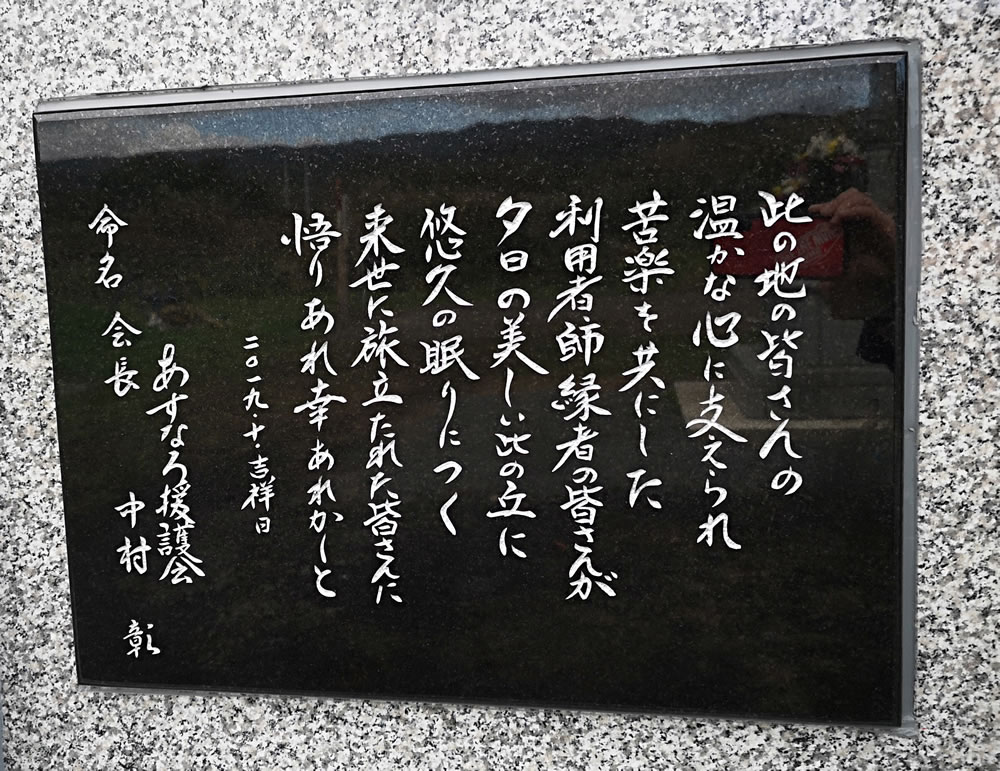 此の地の皆さんの
温かな心に支えられ
苦楽を共にした
利用者・師縁者の皆さんが
夕日の美しい此の丘に
悠久の眠りにつく
来世に旅立たれた皆さんに
悟りあれ幸あれかしと
二〇一九・十・吉祥日
あすなろ援護会
命名 会長 中村 彰